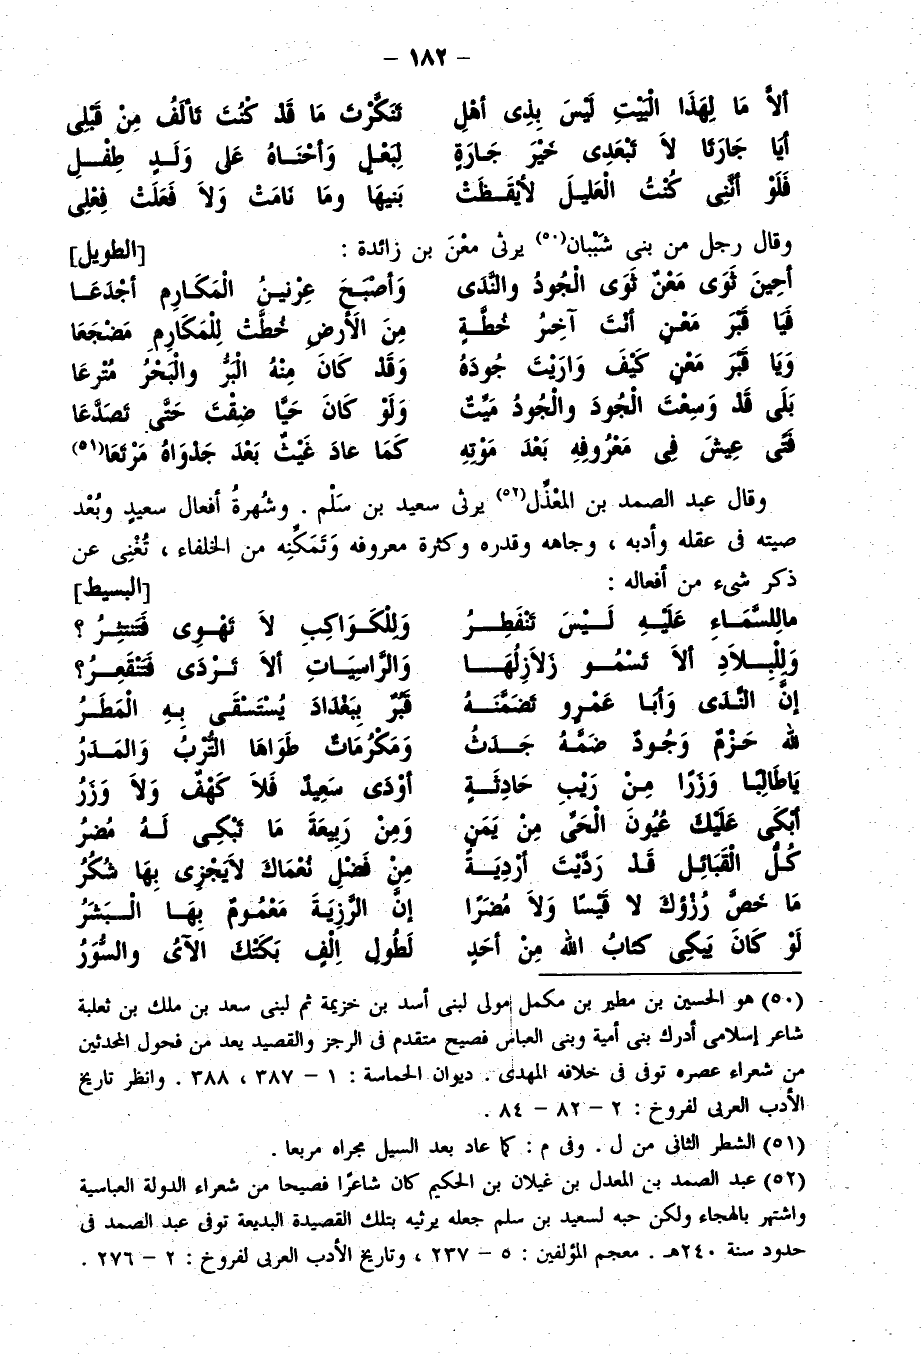 – ١٨٢ –
ألاَّ مَا لِهَذَا الْبَيْتِ لَيْسَ بِذِى أهْلِ تَنَكَّرْتَ مَا قَدْ كُنْتَ تَألَفُ مِنْ قَبْلِى
أيَا جَارَتَا لاَ تَبْعَدِى خَيْرَ جَارَةٍ لِبَعْلٍ وَأحْنَاهُ عَلَى وَلَدٍ طِفْلِ
فَلَوْ أنَّنِى كُنْتُ الْعَلِيلَ لأيْقَظَتْ بَنِيهَا ومَا نَامَتْ وَلاَ فَعَلَتْ فِعْلِى
وقال رجل من بنى شَيْبان(٥٠) يرثى معْنَ بن زائدة : [الطويل]
أحِينَ ثَوَى مَعْنٌ ثَوَى الْجُودُ والنَّدَى وَأصْبَحَ عِرْنِينُ الْمَكَارِمِ أجْدَعَا
فَيَا قَبْرَ مَعْنٍ أنْتَ آخِرُ خُطَّةٍ مِنَ الَأرضِ خُطَّتْ لِلْمَكَارِمِ مَضْجَعَا
وَيَا قَبْرَ مَعْنٍ كَيْفَ وَارَيْتَ جُودَهُ وَقَدْ كَانَ مِنْهُ الْبَرُّ والْبَحْرُ مُتْرعَا
بَلَى قَدْ وَسِعْتَ الْجُودَ والْجُودُ مَيِّتٌ وَلَوْ كَانَ حَيًّا ضِقْتَ حَتَّى تَصَدَّعَا
فَتًى عِيشَ فِى مَعْرُوفِهِ بَعْدَ مَوْتِهِ كَمَا عادَ غَيْثٌ بَعْدَ جَدْوَاهُ مَرْتَعَا(٥١)
وقال عبد الصمد بن المعْذَّل(٥٢) يرثى سعيد بن سَلْم . وشُهرةُ أفعال سعيدٍ وبُعْد
صيته فى عقله وأدبه ، وجاهه وقدره وكثرة معروفه وَتَمَكُّنِه من الخلفاء ، تُغْنِى عن
ذكر شىء من أفعاله : [البسيط]
مالِلسَّمَاءِ عَلَيْهِ لَيْسَ تَنْفَطِرُ وَلِلْكَوَاكِبِ لاَ تَهْوِى فَتَنتثِرُ ؟
وَلِلْبِلاَدِ ألاَ تَسْمُو زَلاَزِلُهَا وَالرَّاسِيَاتِ ألاَ تَرْدَى فَتَنْقَعِرُ؟
إنَّ النَّدَى وَأبَا عَمْرٍو تَضَمَّنَهُ قَبْرٌ بِبَغْدَادَ يُسْتَسْقَى بِهِ الْمَطَرُ
لله حَزْمٌ وَجُودٌ ضَمَّهُ جَدَثُ وَمَكْرُمَاتٌ طَوَاهَا التُّرْبُ وَالْمَدَرُ
يَاطَالِبًا وَزَرًا مِنْ رَيْبِ حَادِثَةٍ أوْدَى سَعِيدٌ فَلاَ كَهْفٌ وَلاَ وَزَرُ
أبْكَى عَلَيْكَ عُيُونَ الْحَىِّ مِنْ يَمَنٍ وَمِنْ رَبِيعَةَ مَا تَبْكِى لَهُ مُضَرُ
كُلُّ الْقَبَائِلِ قَدْ رَدَّيْتَ أرْدِيَةً مِنْ فَضْلِ نُعْمَاكَ لاَيَجْزِى بِهَا شُكُرُ
مَا خَصَّ رُزْؤكَ لا قَيْسًا وَلاَ مُضَرًا إنَّ الرَّزِيَةَ مَعْمُومٌ بِهَا الْبَشَرُ
لَوْ كَانَ يَبكِى كتابُ الله مِنْ أحَدٍ لَطُولِ اِلْفٍ بَكَتْكَ الآىُ والسُّوَرُ
(٥٠) هو الحسين بن مطير بن مكمل مولى لبنى أسد بن خزيمة ثم لبنى سعد بن ملك بن ثعلبة
شاعر إسلامى أدرك بنى أمية وبنى العباس فصيح متقدم فى الرجز والقصيد يعد من فحول المحدثين
من شعراء عصره توفى فى خلافه المهدى . ديوان الحماسة : ١ – ٣٨٧ ، ٣٨٨ . وانظر تاريخ
الأدب العربى لفروخ : ٢ – ٨٢ – ٨٤ .
(٥١) الشطر الثانى من ل . وفى م : كما عاد بعد السيل مجراه مربعا .
(٥٢) عبد الصمد بن المعدل بن غيلان بن الحكيم كان شاعرًا فصيحا من شعراء الدولة العباسية
واشتهر بالهجاء ولكن حبه لسعيد بن سلم جعله يرثيه بتلك القصيدة البديعة توفى عبد الصمد فى
حدود سنة ٢٤٠هـ . معجم المؤلفين : ٥ – ٢٣٧ ، وتاريخ الأدب العربى لفروخ : ٢ – ٢٧٦ .